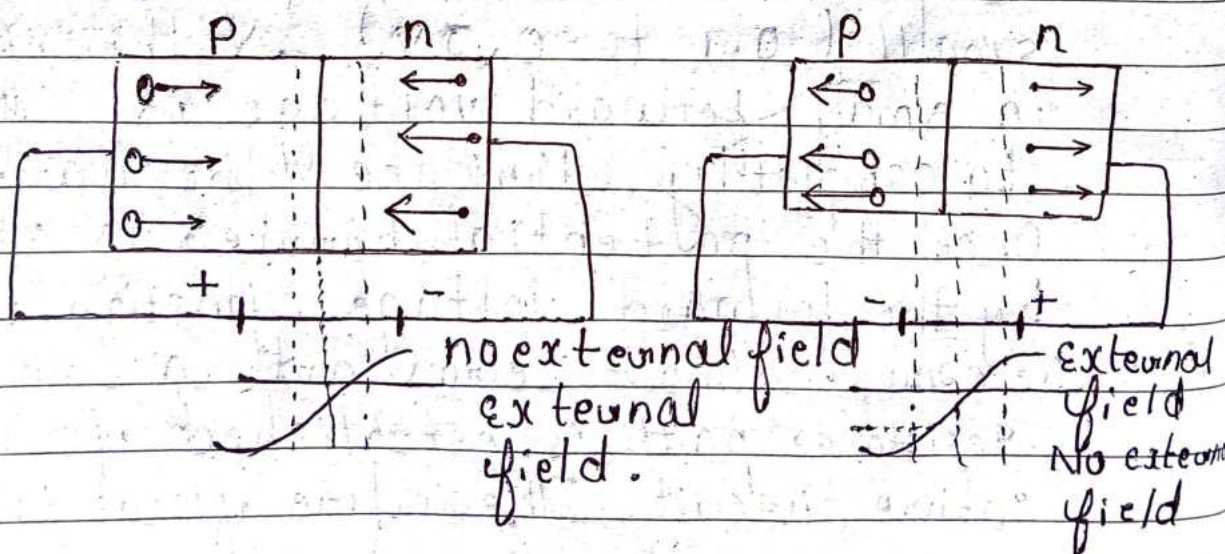 P n
P n
+ -
- +
no external field
external
field.
External
field
No extern
field